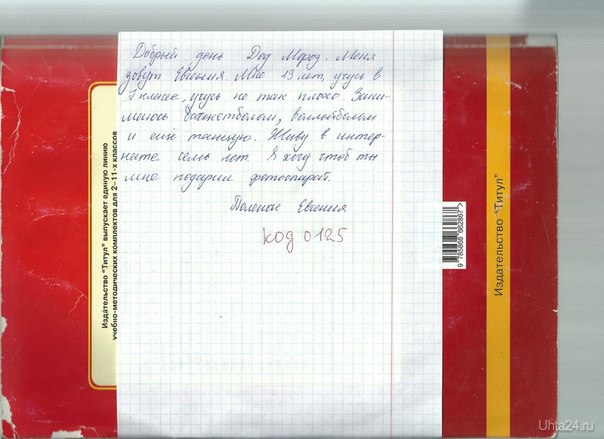 Добрый день Дед Мороз. Меня
зовут Евгения. Мне 13 лет, учусь в
классе, учусь не так плохо Зани-
маюсь баскетболом, воллейболом
и ещё танцую. Живу в интер-
нате семь лет. Я хочу чтоб ты
мне подарил фотоопарат.
Евгения
код 0125
Издательство "Титул" выпускает единую линию
учебно-методических комплектов для 2–11-х классов
9 785868 662867 >
Издательство "Титул"
Uhta24.ru